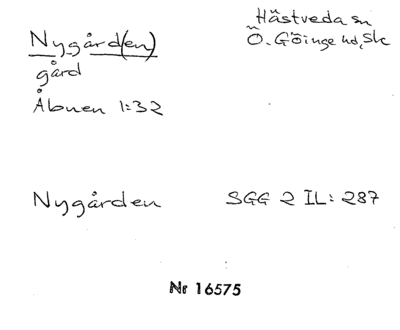 Nygård(en)
gård
Åbuen 1:32
Hästveda sn
Ö. Göinge hd, Sk
Nygården
SGG 2 IL: 287
Nr 16575